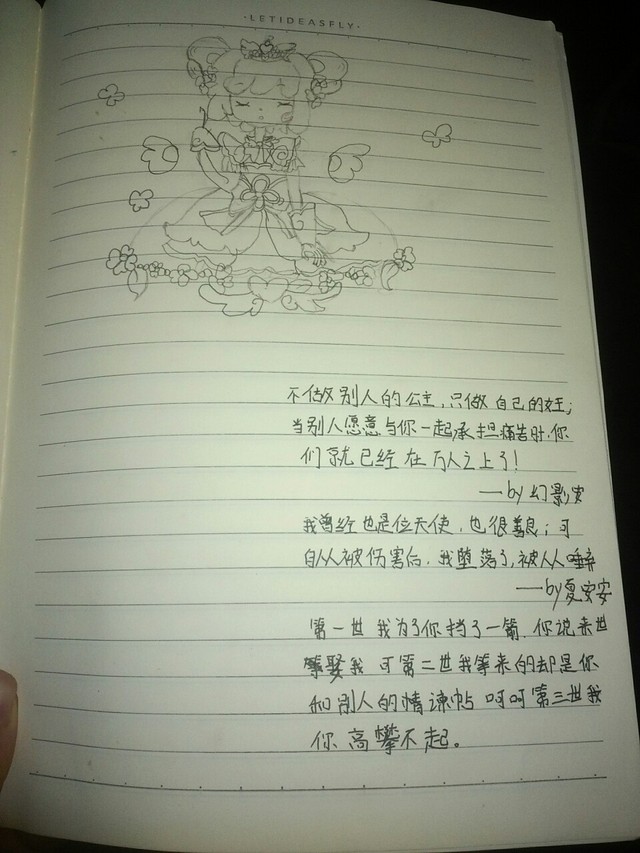 ·LETIDEASFLY·
不做别人的公主,只做自己的女王;
当别人愿意与你一起承担痛苦时,你
们就已经在万人之上了!
——by幻影安
我曾经也是位天使,也很善良;可
自从被伤害后,我堕落了,被人人唾弃
——by夏安安
第一世我为了你挡了一箭,你说来世
等娶我可第二世我等来的却是你
和别人的情谏帖呵呵第三世我
你高攀不起。